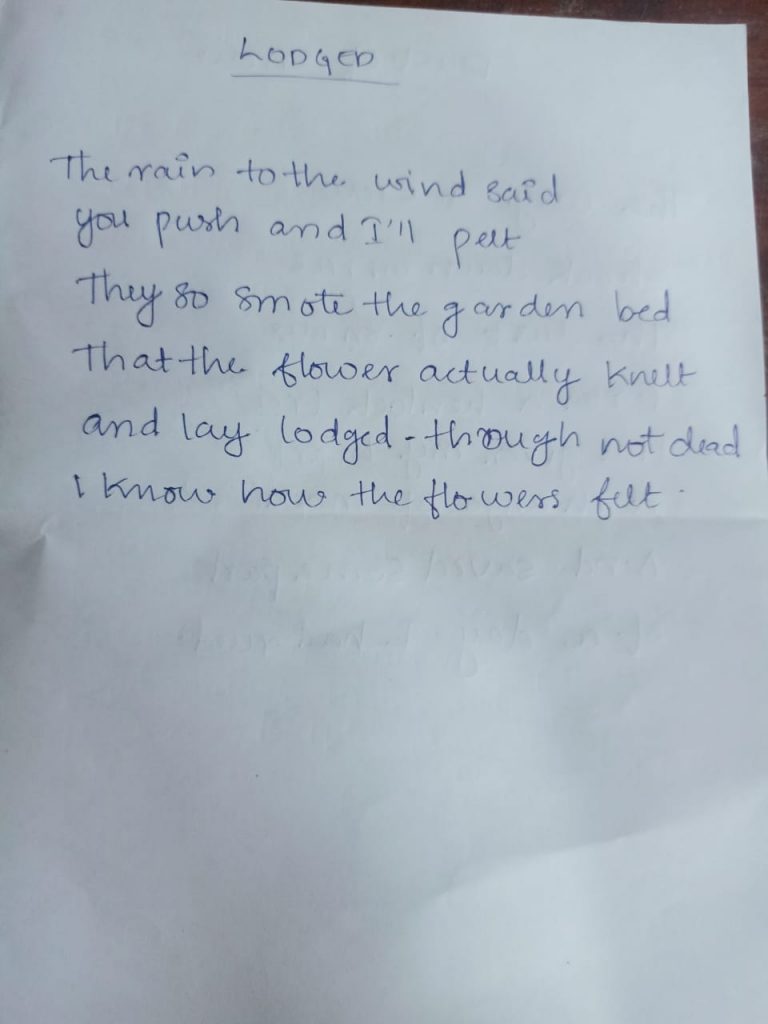 LODGED
The rain to the wind said
you push and I'll pelt
They so smote the garden bed
That the flower actually knelt
and lay lodged - through not dead
I know how the flowers felt.